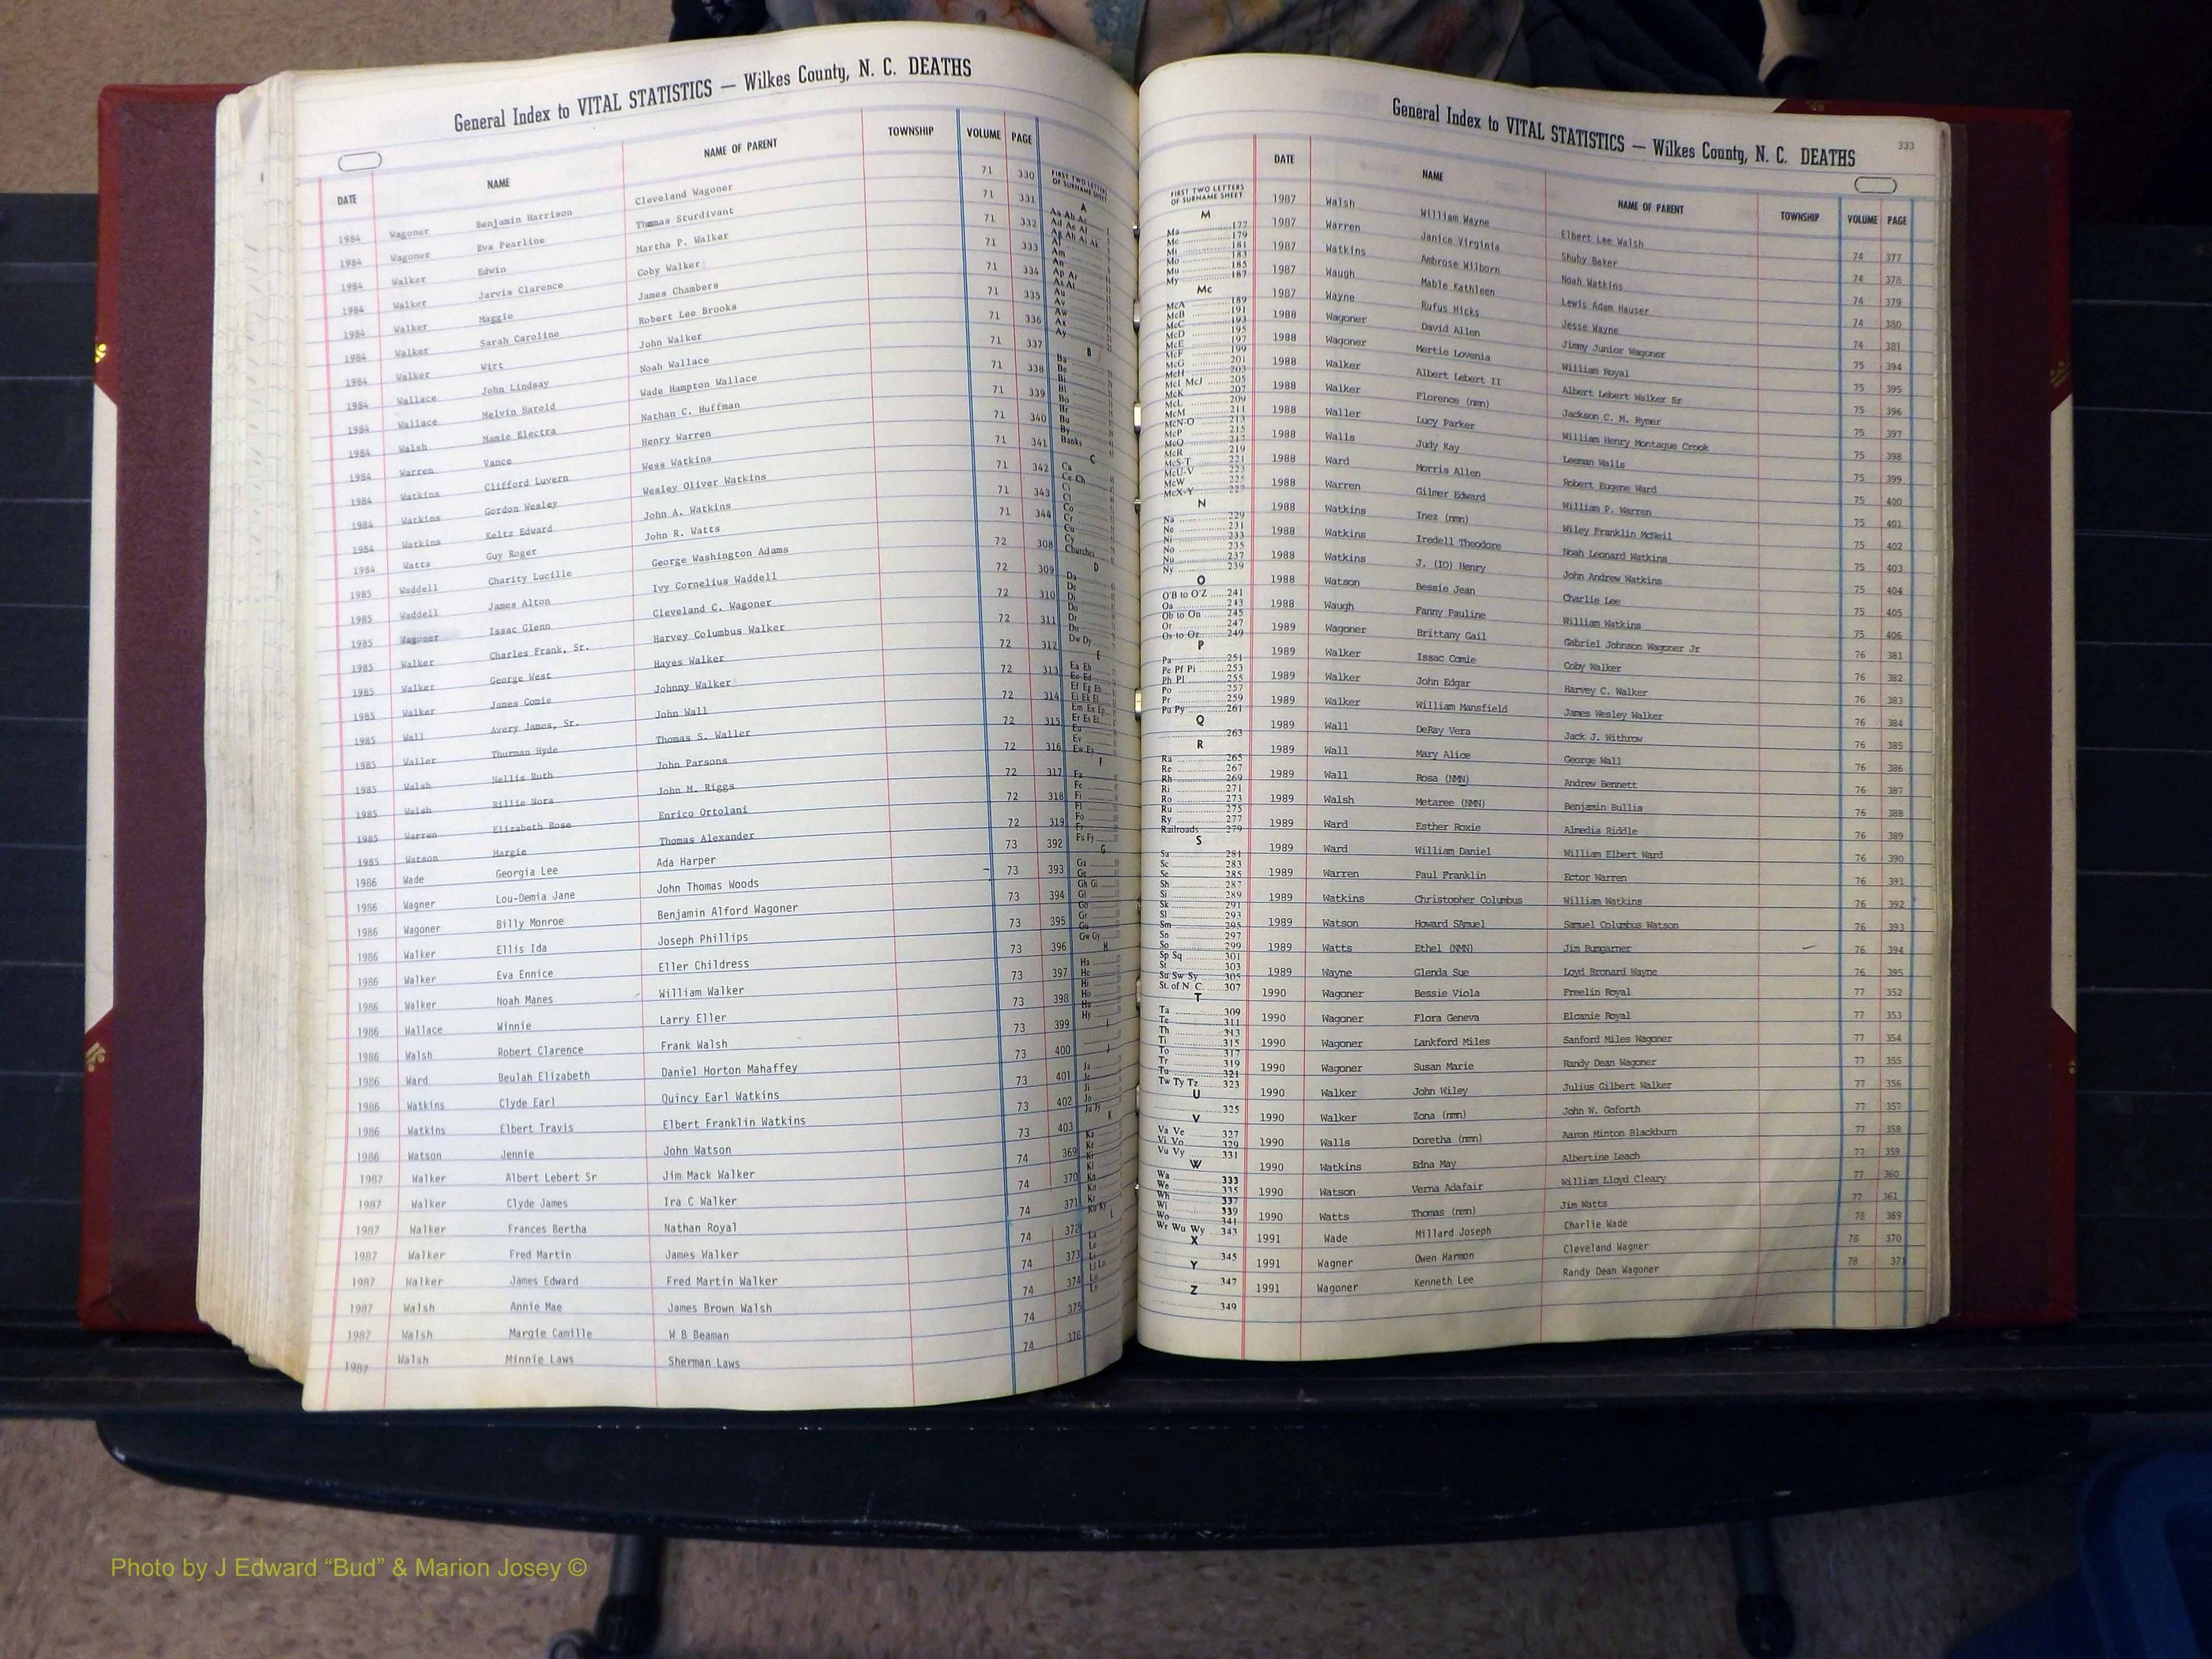 General Index to VITAL STATISTICS — Wilkes County, N. C. DEATHS
DATE NAME NAME OF PARENT TOWNSHIP VOLUME PAGE
1984 Wagoner Benjamin Harrison Cleveland Wagoner 71 330
1984 Wagoner Eva Pearline Thomas Sturdivant 71 331
1984 Walker Edwin Martha P. Walker 71 332
1984 Walker Jarvis Clarence Coby Walker 71 333
1984 Walker Maggie James Chambers 71 334
1984 Walker Sarah Caroline Robert Lee Brooks 71 335
1984 Walker Wirt John Walker 71 336
1984 Wallace John Lindsay Noah Wallace 71 337
1984 Wallace Melvin Harold Wade Hampton Wallace 71 338
1984 Walsh Mamie Electra Nathan C. Huffman 71 339
1984 Warren Vance Henry Warren 71 340
1984 Watkins Clifford Luvern Wess Watkins 71 341
1984 Watkins Gordon Wesley Wesley Oliver Watkins 71 342
1984 Watkins Keltz Edward John A. Watkins 71 343
1984 Watts Guy Roger John R. Watts 71 344
1985 Waddell Charity Lucille George Washington Adams 72 308
1985 Waddell James Alton Ivy Cornelius Waddell 72 309
1985 Wagoner Issac Glenn Cleveland C. Wagoner 72 310
1985 Walker Charles Frank, Sr. Harvey Columbus Walker 72 311
1985 Walker George West Hayes Walker 72 312
1985 Walker James Comie Johnny Walker 72 313
1985 Wall Avery James, Sr. John Wall 72 314
1985 Waller Thurman Hyde Thomas S. Waller 72 315
1985 Walsh Nellis Ruth John Parsons 72 316
1985 Walsh Billie Nora John M. Riggs 72 317
1985 Warren Elizabeth Rose Enrico Ortolani 72 318
1985 Watson Margie Thomas Alexander 72 319
1986 Wade Georgia Lee Ada Harper 73 392
1986 Wagner Lou-Demia Jane John Thomas Woods 73 393
1986 Wagoner Billy Monroe Benjamin Alford Wagoner 73 394
1986 Walker Ellis Ida Joseph Phillips 73 395
1986 Walker Eva Ennice Eller Childress 73 396
1986 Walker Noah Manes William Walker 73 397
1986 Wallace Winnie Larry Eller 73 398
1986 Walsh Robert Clarence Frank Walsh 73 399
1986 Ward Beulah Elizabeth Daniel Horton Mahaffey 73 400
1986 Watkins Clyde Earl Quincy Earl Watkins 73 401
1986 Watkins Elbert Travis Elbert Franklin Watkins 73 402
1986 Watson Jennie John Watson 73 403
1987 Walker Albert Lebert Sr Jim Mack Walker 74 369
1987 Walker Clyde James Ira C Walker 74 370
1987 Walker Frances Bertha Nathan Royal 74 371
1987 Walker Fred Martin James Walker 74 372
1987 Walker James Edward Fred Martin Walker 74 373
1987 Walsh Annie Mae James Brown Walsh 74 374
1987 Walsh Margie Camille W B Beaman 74 375
1987 Walsh Minnie Laws Sherman Laws 74 376
FIRST TWO LETTERS
OF SURNAME SHEET
A
Aa Ab Ac
Ad Ae Af
Ag Ah Ai Ak
Al
Am
An
Ap Ar
As At
Au
Av
Aw
Ax
Ay
B
Ba
Be
Bi
Bl
Bo
Br
Bu
By
Banks
C
Ca
Ce Ch
Ci
Cl
Co
Cr
Cu
Cy
Churches
D
Da
De
Di
Do
Dr
Du
Dw Dy
E
Ea Eb
Ec Ed
Ef Eg Eh
Ei Ek El
Em En Ep
Er Es Et
Eu
Ev
Ew Ey
F
Fa
Fe
Fi
Fl
Fo
Fr
Fu Fy
G
Ga
Ge
Gh Gi
Gl
Go
Gr
Gu
Gw Gy
H
Ha
He
Hi
Ho
Hu
Hy
I
J
Ja
Je
Ji
Jo
Ju Jy
K
Ka
Ke
Ki
Kl
Kn
Ko
Kr
Ku Ky
L
La
Le
Li
Ll Lo
Lu
Ly
General Index to VITAL STATISTICS — Wilkes County, N. C. DEATHS
333
FIRST TWO LETTERS
OF SURNAME SHEET
M
Ma 177
Me 179
Mi 181
Mo 183
Mu 185
My 187
Mc
McA 189
McB 191
McC 193
McD 195
McE 197
McF 199
McG 201
McH 203
McI McJ 205
McK 207
McL 209
McM 211
McN-O 213
McP 215
McQ 217
McR 219
McS-T 221
McU-V 223
McW 225
McX-Y 227
N
Na 229
Ne 231
Ni 233
No 235
Nu 237
Ny 239
O
O'B to O'Z 241
Oa 243
Ob to On 245
Or 247
Os to Oz 249
P
Pa 251
Pe Pf Pi 253
Ph Pl 255
Po 257
Pr 259
Pu Py 261
Q
263
R
Ra 265
Re 267
Rh 269
Ri 271
Ro 273
Ru 275
Ry 277
Railroads 279
S
Sa 281
Sc 283
Se 285
Sh 287
Si 289
Sk 291
Sl 293
Sm 295
Sn 297
So 299
Sp Sq 301
St 303
Su Sw Sy 305
St. of N. C. 307
T
Ta 309
Te 311
Th 313
Ti 315
To 317
Tr 319
Tu 321
Tw Ty Tz 323
U
325
V
Va Ve 327
Vi Vo 329
Vu Vy 331
W
Wa 333
We 335
Wh 337
Wi 339
Wo 341
Wr Wu Wy 343
X
345
Y
347
Z
349
DATE NAME NAME OF PARENT TOWNSHIP VOLUME PAGE
1987 Walsh William Wayne Elbert Lee Walsh 74 377
1987 Warren Janice Virginia Shuby Baker 74 378
1987 Watkins Ambrose Wilborn Noah Watkins 74 379
1987 Waugh Mable Kathleen Lewis Adam Hauser 74 380
1987 Wayne Rufus Hicks Jesse Wayne 74 381
1988 Wagoner David Allen Jimmy Junior Wagoner 75 394
1988 Wagoner Mertie Lovenia William Royal 75 395
1988 Walker Albert Lebert II Albert Lebert Walker Sr 75 396
1988 Walker Florence (nmn) Jackson C. M. Rymer 75 397
1988 Waller Lucy Parker William Henry Montague Crook 75 398
1988 Walls Judy Kay Leeman Walls 75 399
1988 Ward Morris Allen Robert Eugene Ward 75 400
1988 Warren Gilmer Edward William P. Warren 75 401
1988 Watkins Inez (nmn) Wiley Franklin McNeil 75 402
1988 Watkins Iredell Theodore Noah Leonard Watkins 75 403
1988 Watkins J. (IO) Henry John Andrew Watkins 75 404
1988 Watson Bessie Jean Charlie Lee 75 405
1988 Waugh Fanny Pauline William Watkins 75 406
1989 Wagoner Brittany Gail Gabriel Johnson Wagoner Jr 76 381
1989 Walker Issac Comie Coby Walker 76 382
1989 Walker John Edgar Harvey C. Walker 76 383
1989 Walker William Mansfield James Wesley Walker 76 384
1989 Wall DeRay Vera Jack J. Withrow 76 385
1989 Wall Mary Alice George Wall 76 386
1989 Wall Rosa (NMN) Andrew Bennett 76 387
1989 Walsh Metaree (NMN) Benjamin Bullis 76 388
1989 Ward Esther Roxie Almedia Riddle 76 389
1989 Ward William Daniel William Elbert Ward 76 390
1989 Warren Paul Franklin Ector Warren 76 391
1989 Watkins Christopher Columbus William Watkins 76 392
1989 Watson Howard SAmuel Samuel Columbus Watson 76 393
1989 Watts Ethel (NMN) Jim Bumgarner 76 394
1989 Wayne Glenda Sue Loyd Bronard Wayne 76 395
1990 Wagoner Bessie Viola Freelin Royal 77 352
1990 Wagoner Flora Geneva Elcanie Royal 77 353
1990 Wagoner Lankford Miles Sanford Miles Wagoner 77 354
1990 Wagoner Susan Marie Randy Dean Wagoner 77 355
1990 Walker John Wiley Julius Gilbert Walker 77 356
1990 Walker Zona (nmn) John W. Goforth 77 357
1990 Walls Doretha (nmn) Aaron Minton Blackburn 77 358
1990 Watkins Edna May Albertine Leach 77 359
1990 Watson Verna Adafair William Lloyd Cleary 77 360
1990 Watts Thomas (nmn) Jim Watts 77 361
1991 Wade Millard Joseph Charlie Wade 78 369
1991 Wagner Owen Harmon Cleveland Wagner 78 370
1991 Wagoner Kenneth Lee Randy Dean Wagoner 78 371
Photo by J Edward “Bud” & Marion Josey ©